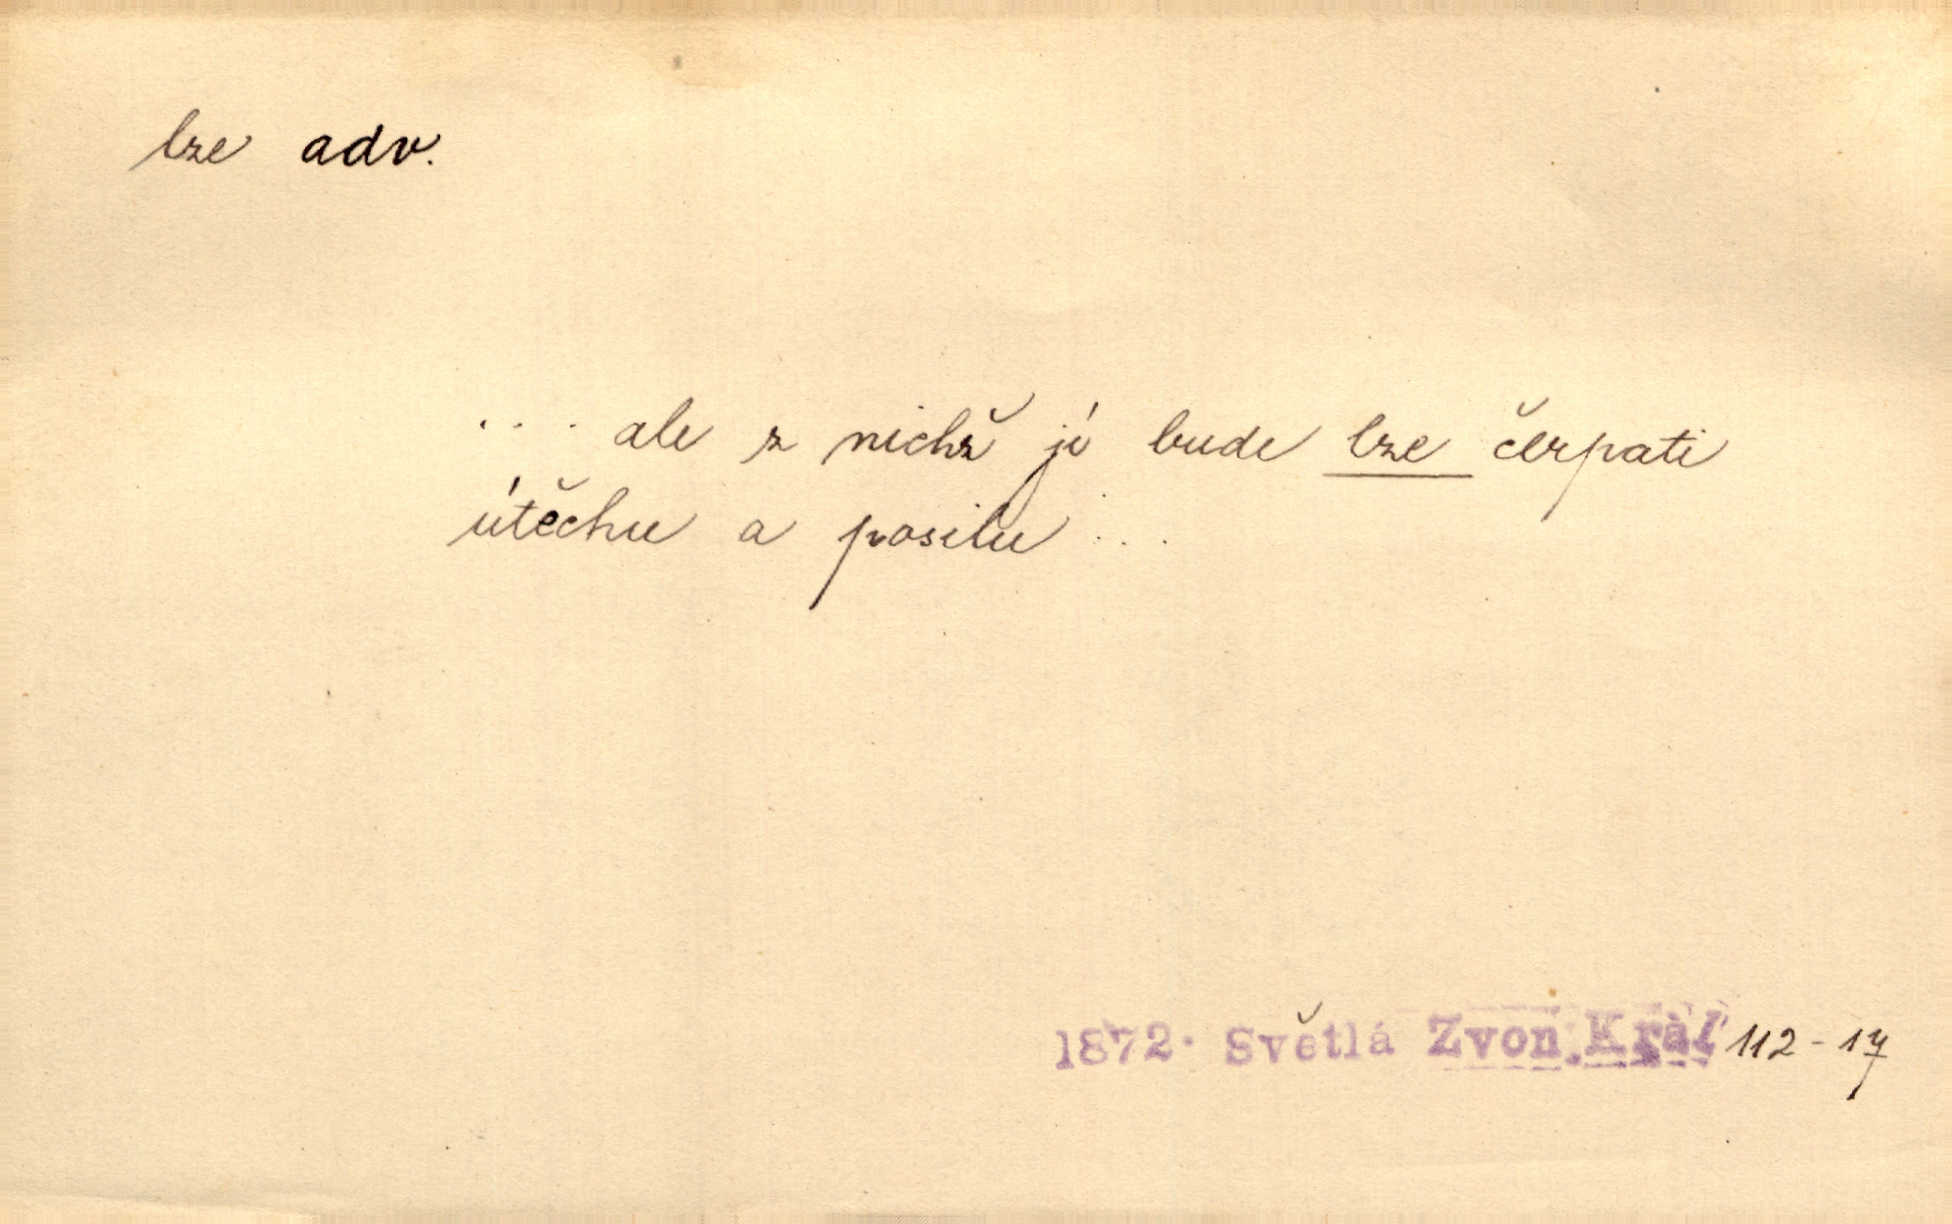 lze adv.
... ale z nichž jí bude lze čerpati
útěchu a posilu ...
1872. Světlá Zvon. Král. 112-17